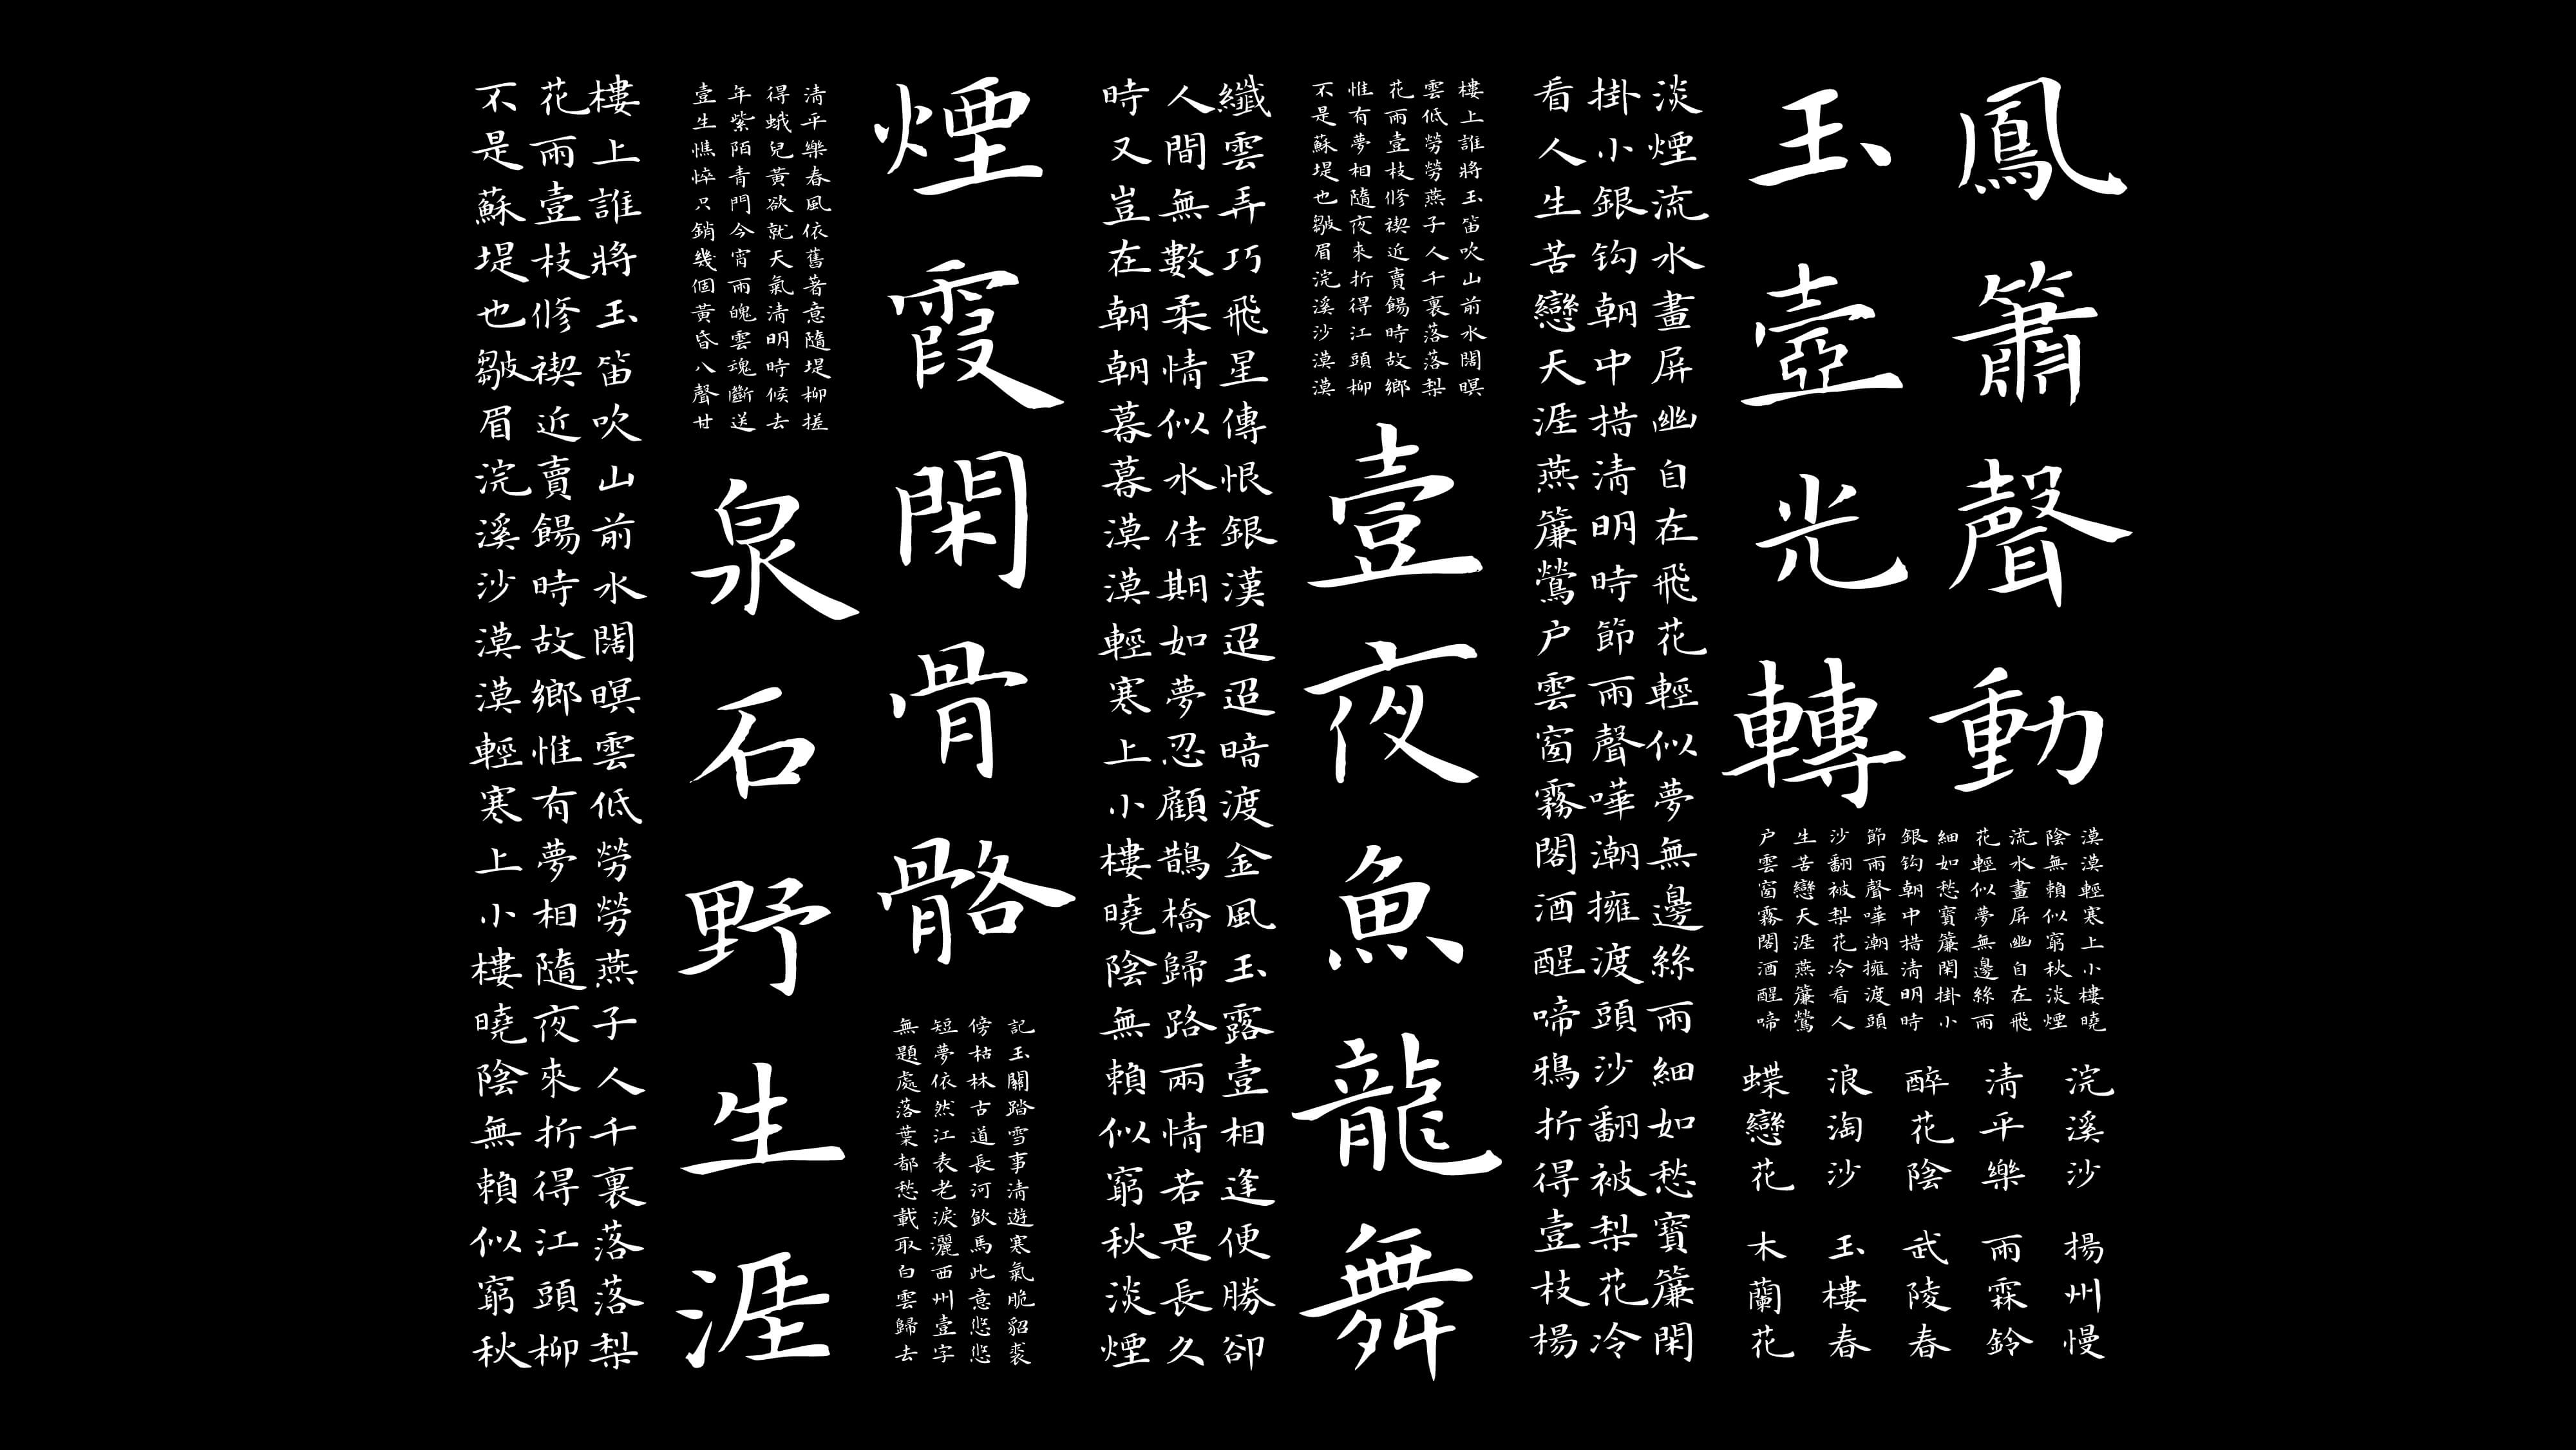 鳳簫聲動
玉壺光轉
漠漠輕寒上小樓曉
陰無賴似窮秋淡煙
流水畫屏幽自在飛
花輕似夢無邊絲雨
細如愁寶簾閑掛小
銀钩朝中措清明時
節雨聲嘩潮擁渡頭
沙翻被梨花冷看人
生苦戀天涯燕簾鶯
户雲窗霧閣酒醒啼
浣溪沙
清平樂
醉花陰
浪淘沙
蝶戀花
揚州慢
雨霖鈴
武陵春
玉樓春
木蘭花
淡煙流水畫屏幽自在飛花輕似夢無邊絲雨細如愁寶簾閑
掛小銀钩朝中措清明時節雨聲嘩潮擁渡頭沙翻被梨花冷
看人生苦戀天涯燕簾鶯户雲窗霧閣酒醒啼鴉折得壹枝楊
樓上誰將玉笛吹山前水闊暝
雲低勞勞燕子人千裏落落梨
花雨壹枝修禊近賣餳時故鄉
惟有夢相隨夜來折得江頭柳
不是蘇堤也皺眉浣溪沙漠漠
壹夜魚龍舞
纖雲弄巧飛星傳恨銀漢迢迢暗渡金風玉露壹相逢便勝卻
人間無數柔情似水佳期如夢忍顧鵲橋歸路兩情若是長久
時又豈在朝朝暮暮漠漠輕寒上小樓曉陰無賴似窮秋淡煙
煙霞閑骨骼
記玉關踏雪事清遊寒氣脆貂裘
傍枯林古道長河飲馬此意悠悠
短夢依然江表老淚灑西州壹字
無題處落葉都愁載取白雲歸去
清平樂春風依舊著意隨堤柳搓
得蛾兒黃欲就天氣清明時候去
年紫陌青門今宵雨魄雲魂斷送
壹生憔悴只銷幾個黃昏八聲甘
泉石野生涯
樓上誰將玉笛吹山前水闊暝雲低勞勞燕子人千裏落落梨
花雨壹枝修禊近賣餳時故鄉惟有夢相隨夜來折得江頭柳
不是蘇堤也皺眉浣溪沙漠漠輕寒上小樓曉陰無賴似窮秋